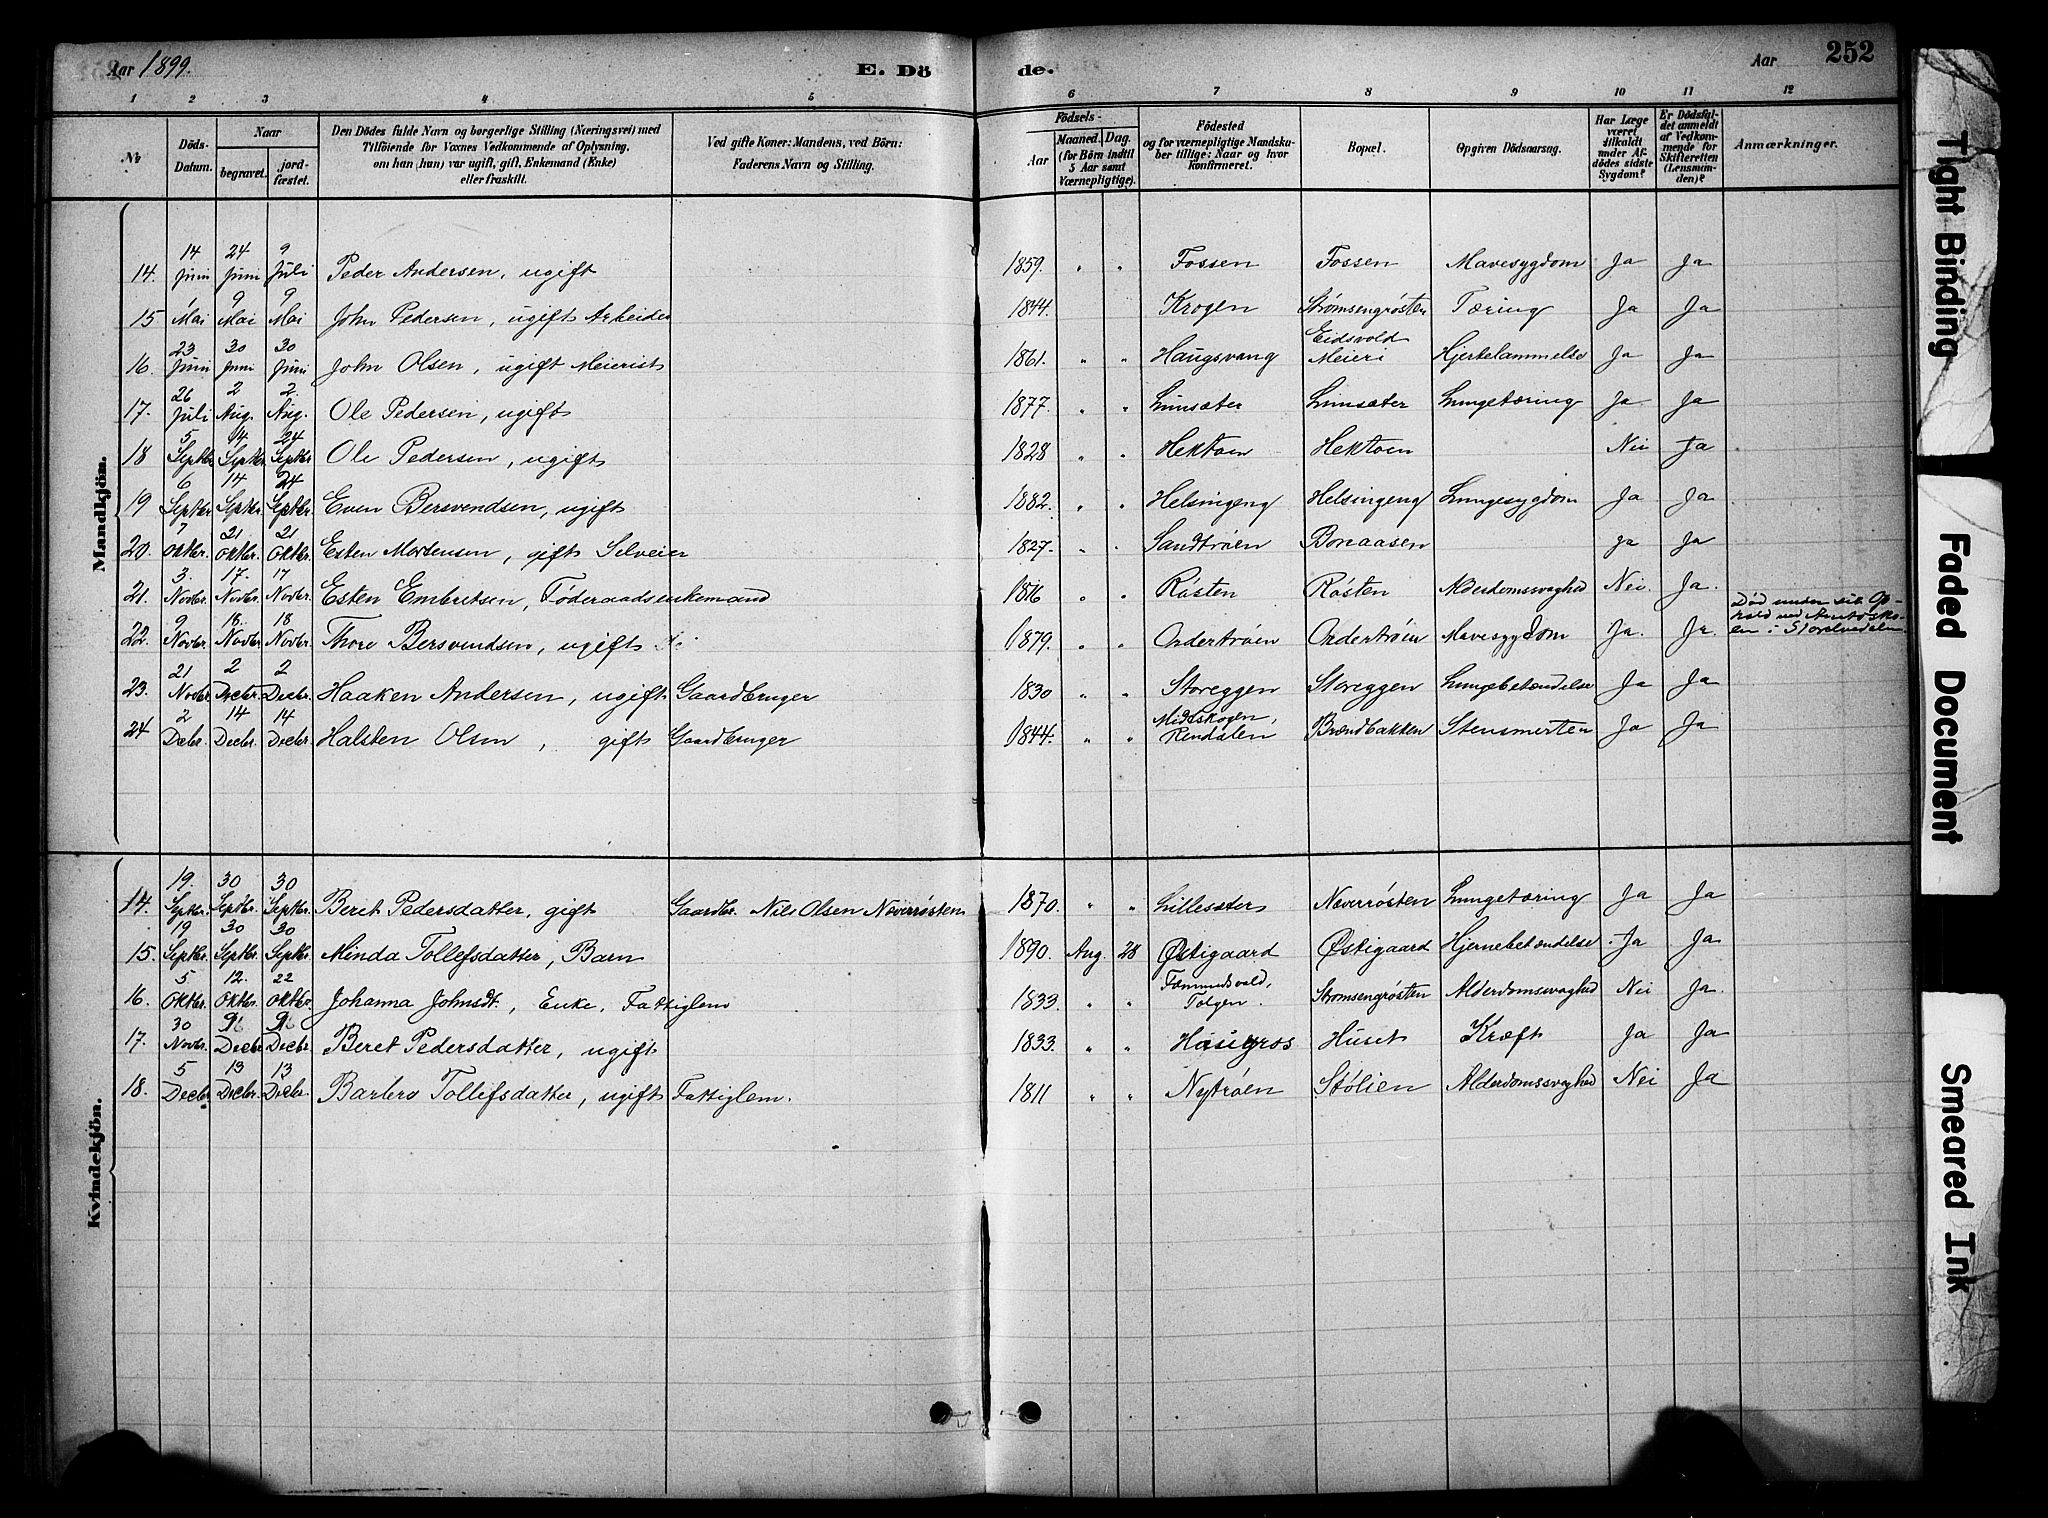 Aar 1899. E. Dö de. Aar 252
1 2 3 4 5 6 7 8 9 10 11 12
No
Döds-Datum.
Naar
begravet.
jord-fæstet.
Den Dödes fulde Navn og borgerlige Stilling (Næringsvei) med
Tilföiende for Voxnes Vedkommende af Oplysning,
om han (hun) var ugift, gift, Enkemand (Enke)
eller fraskilt.
Ved gifte Koner: Mandens, ved Börn:
Faderens Navn og Stilling.
Födsels-
Aar
Maaned. Dag.
(for Börn indtil
5 Aar samt
Værnepligtige).
Födested
og for værnepligtige Mandska-
ber tillige: Naar og hvor
konfirmeret.
Bopæl.
Opgiven Dödsaarsag.
Har Læge
været
tilkaldt
under Af-
dödes sidste
Sygdom?
Er Dödsfal-
det anmeldt
af Vedkom-
mende for
Skifteretten
(Lensman-
den)?
Anmærkninger.
Mandkjön.
14. 14 Juni 24 Juni 9 Juli Peder Andersen, ugift 1859. " " Fossen Fossen Mavesygdom Ja Ja
15 Mai 9 Mai 9 Mai John Pedersen, ugift Arbeider 1844. Krogen Strømsengrøsten Tæring Ja Ja
16. 23 Juni 30 Juni 30 Juni John Olsen, ugift Meierist 1861. " " Haugsvang Eidsvold Meieri Hjertelammelse Ja Ja
17. 26 Juli 2 Aug. 2. Aug. Ole Pedersen, ugift 1877. " " Lunsæter Lunsæter Lungetæring Ja Ja
18 5 Septbr. 14 Septbr. 24 Septbr. Ole Pedersen, ugift 1828 " " Hektoen Hektoen Nei Ja
19 6 Septbr. 14 Septbr. 24 Septbr. Even Bersvendsen, ugift 1882. " " Helsingeng Helsingeng Lungesygdom Ja Ja
20. 7 Oktbr. 21 Oktbr. 21 Oktbr. Esten Mortensen, gift Selveier 1827. " " Sandtrøen Bonaasen ja Ja
21. 3. Novbr. 17. Novbr. 17 Novbr. Esten Embretsen, Føderaadsenkemand 1816 " " Røsten Røsten Alderdomssvaghed Nei Ja.
22. 9 Novbr. 18. Novbr. 18 Novbr. Thore Bersvendsen, ugift 1879. " " Ordertrøen Ordertrøen Mavesygdom Ja. Ja. Død under sit Op-
hold ved
i Storelvedalen
23. 21 Novbr. 2 Decbr. 2 Decbr. Haaken Andersen, ugift Gaardbruger 1830 " " Storeggen Storeggen Lungebetændelse Ja Ja
24 2 Decbr. 14 Decbr. 14 Decbr. Halsten Olsen, gift Gaardbruger 1844. " " Midtskogen, Rendalen Brændbakken Stensmerter Ja Ja
Kvindekjön.
14. 19. Septbr. 30 Septbr. 30 Septbr. Beret Pedersdatter, gift Gaardbr. Nils Olsen Noverrøsten 1870. " " Lillesæter Noverrøsten Lungetæring Ja Ja
15. 19 Septbr. 30 Septbr. 30 Septbr. Minda Tollefsdatter, Barn 1890. Aug. 28 Østigaard Østigaard Hjernebetændelse Ja Ja
16. 5 Oktbr. 12. Oktbr. 22 Oktbr. Johanna Johnsdt., Enke, Fattiglem 1833. " " Fæmundsvold, Tolgen. Strømsengrøsten Alderdomssvaghed Nei Ja.
17. 30 Novbr. Decbr. Decbr. Beret Pedersdatter, ugift 1833. " " Huset Kræft Ja Ja
18. 5 Decbr. 13 Decbr. 13 Decbr. Barbro Tollefsdatter, ugift Fattiglem. 1811 " " Nytrøen Stølien Alderdomssvaghed Nei Ja
Tight Binding
Faded Document
Smeared Ink